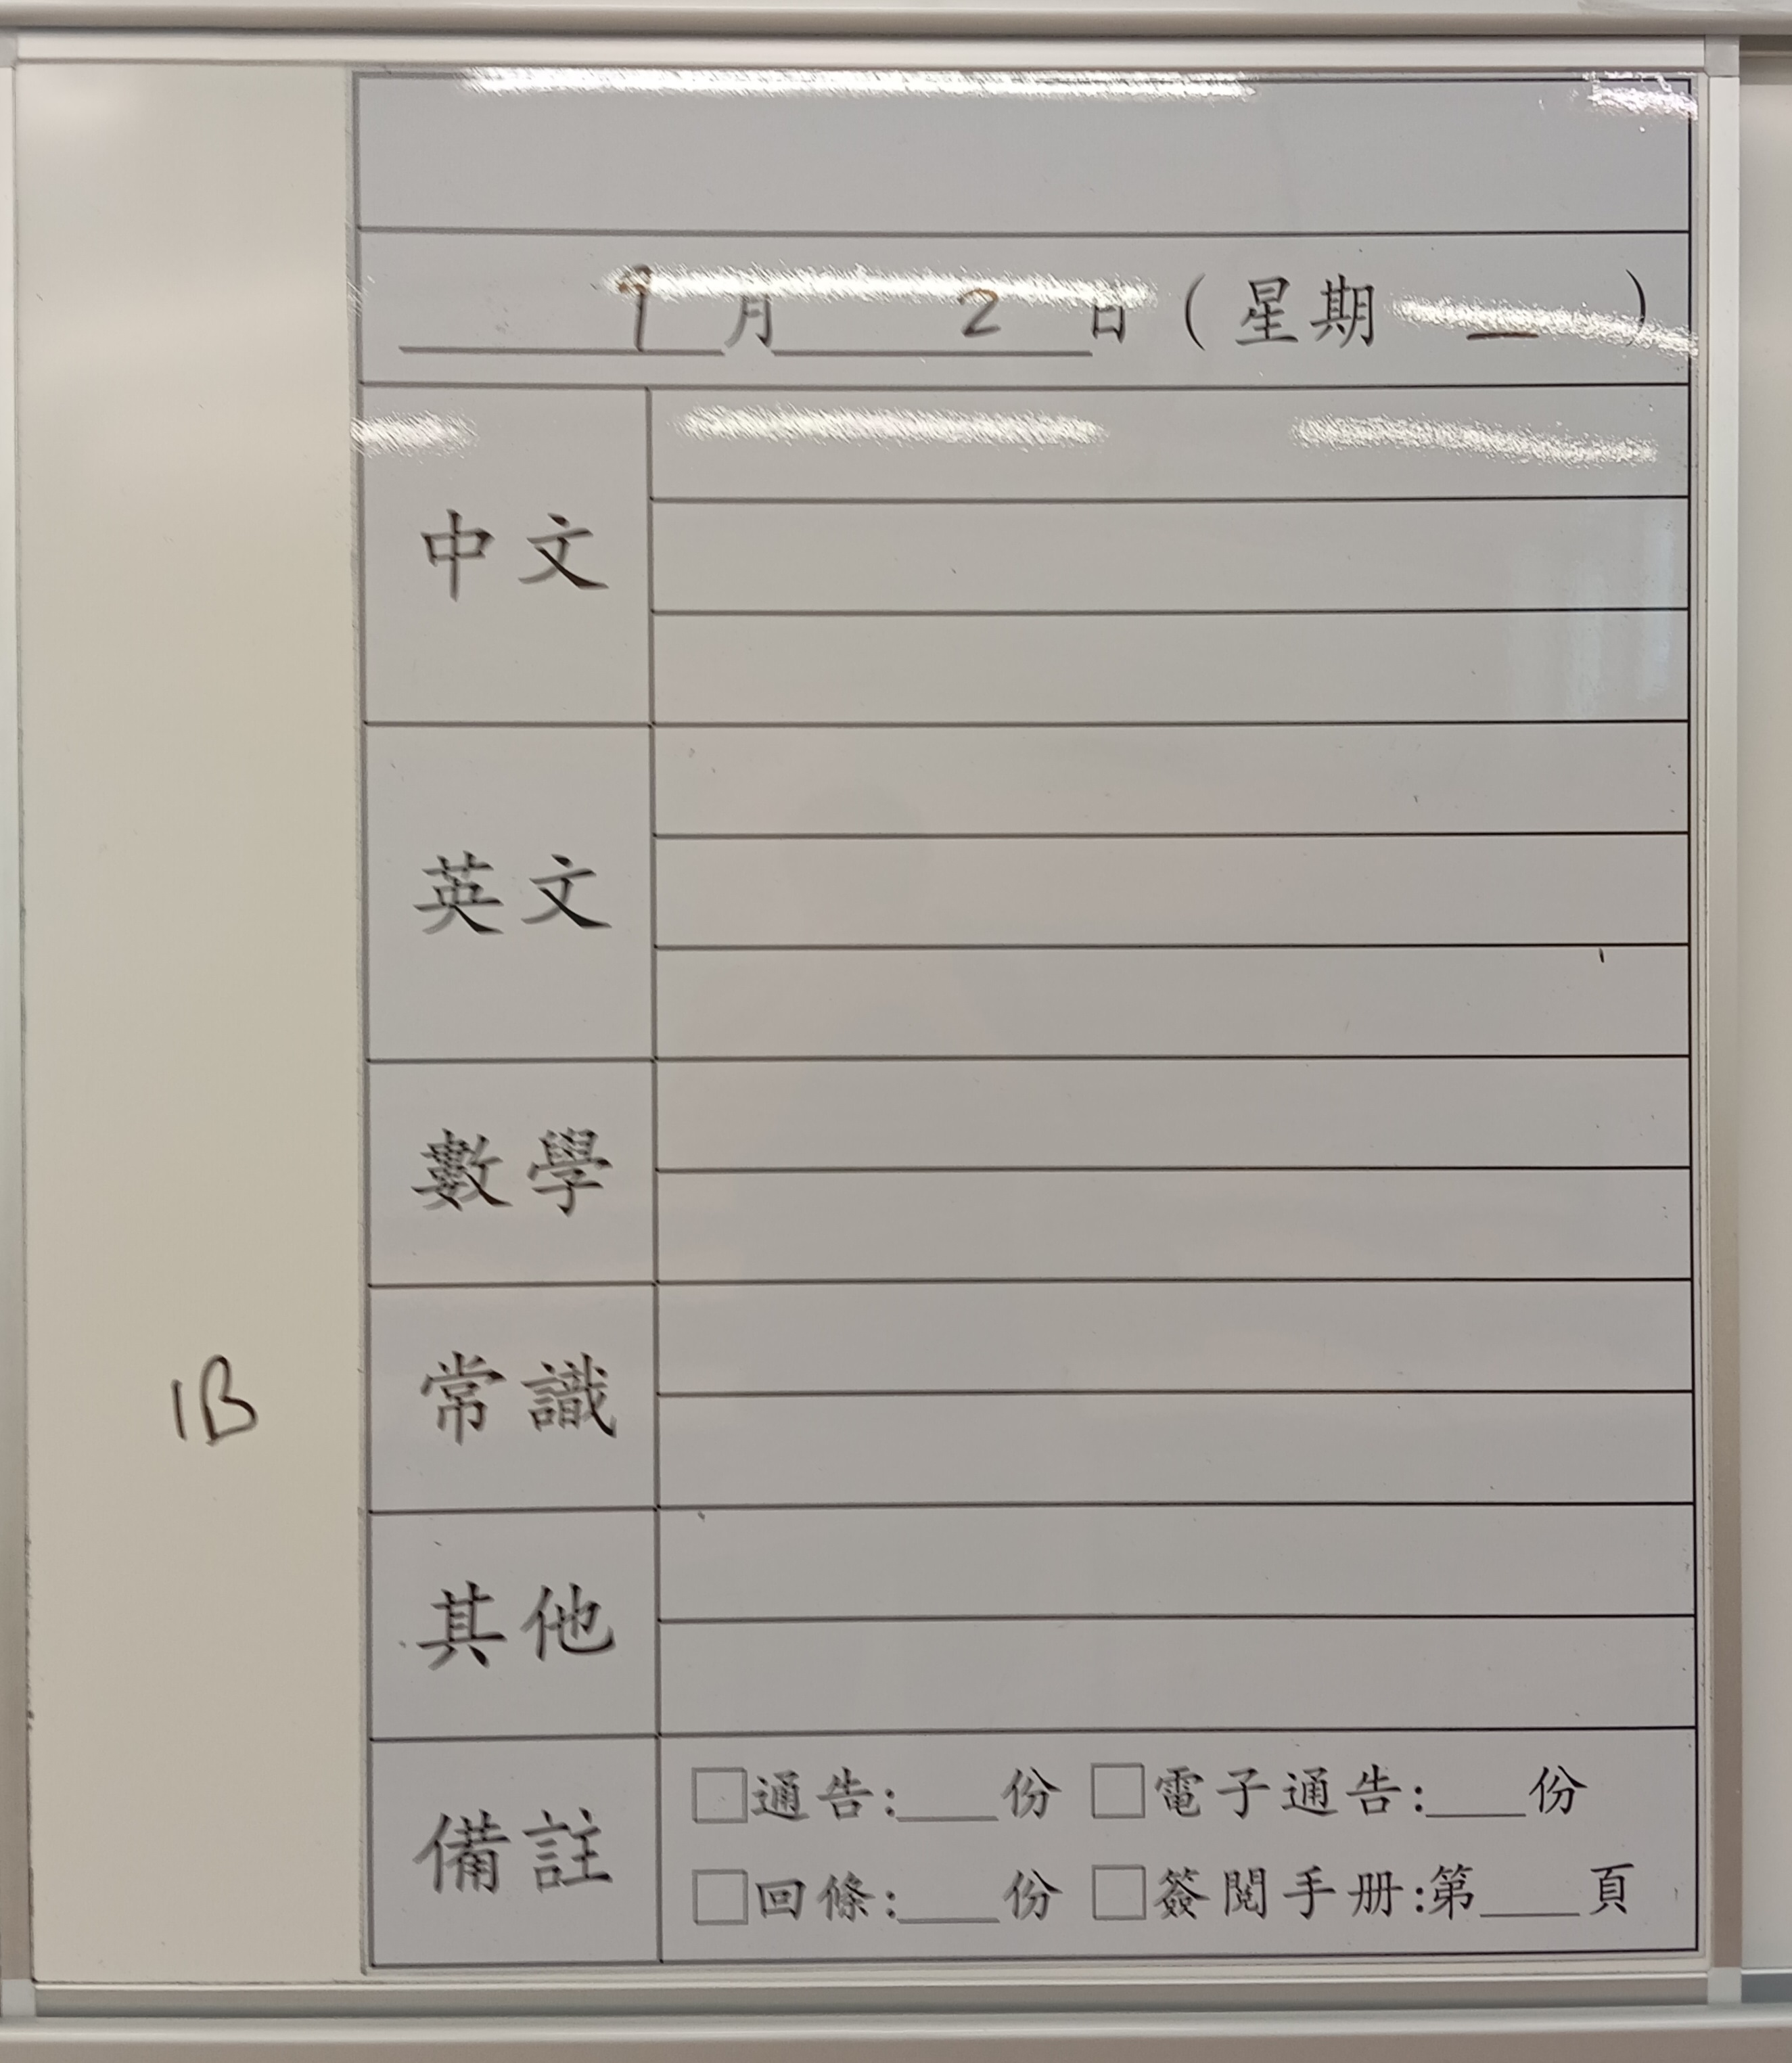 9月2日(星期一)
中文
英文
數學
1B
常識
其他
備註
□通告:___份 □電子通告:___份
□回條:___份 □簽閱手册:第___頁